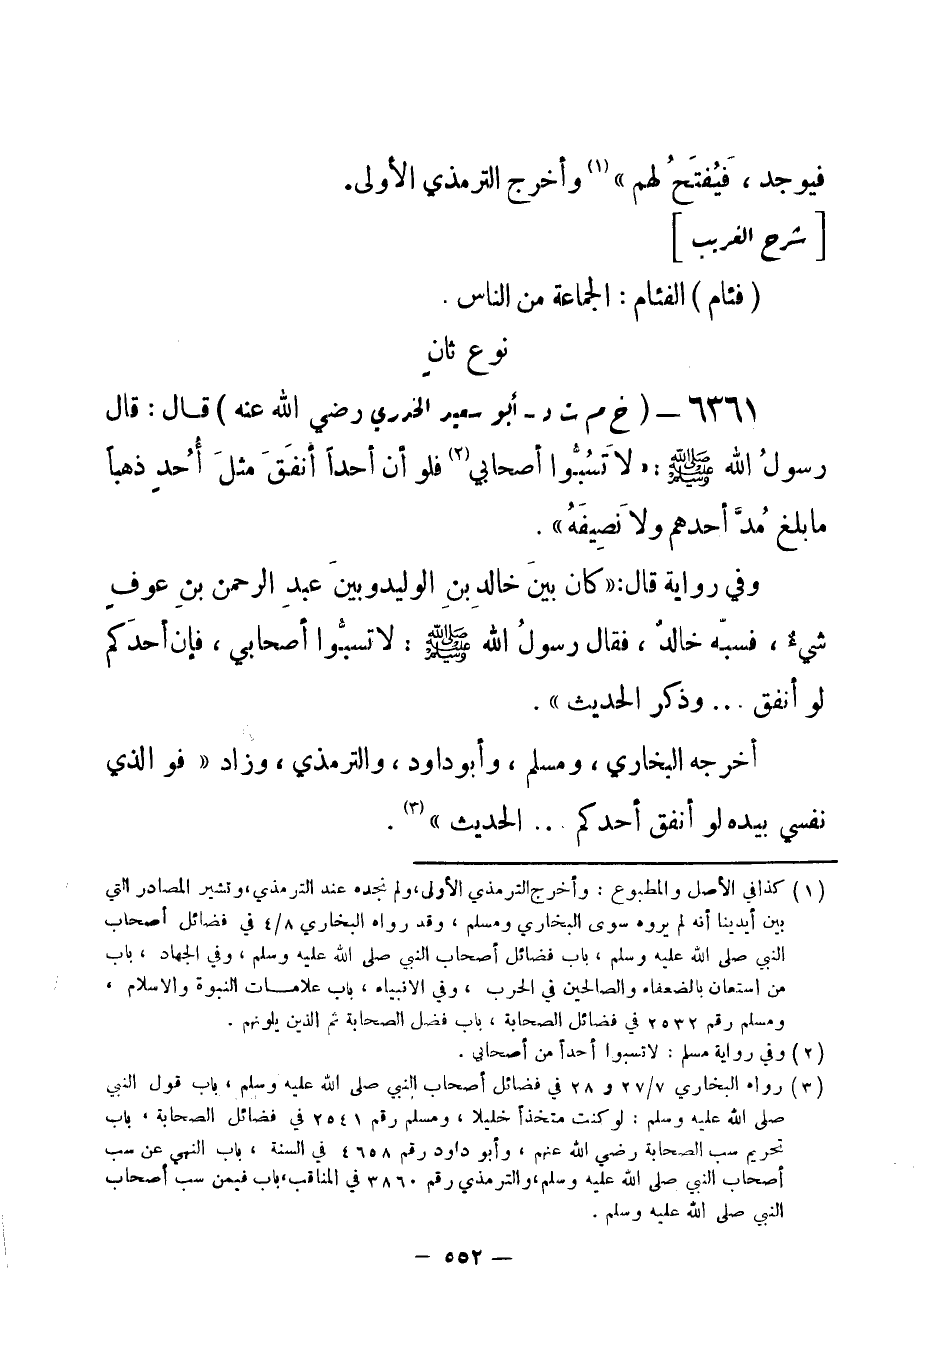 فيوجد ، فَيُفتَحُ لهم » (١) وأخرج الترمذي الأولى.
[ شرح الغريب ]
( فئام ) الفئام : الجماعة من الناس .
نوع ثانٍ
٦٣٦١ – ( خ م ت د - أبو سعيد الخدري رضي الله عنه ) قال : قال
رسولُ الله ﷺ : « لا تَسُبُّوا أصحابي (٢) فلو أن أحداً أنفَقَ مثلَ أُحدٍ ذهباً
مابلغ مُدَّ أحدهم ولا نَصِيفَهُ » .
وفي رواية قال: « كان بينَ خالدِ بنِ الوليدوبينَ عبدِ الرحمن بنِ عوفٍ
شيءٌ ، فسبّه خالدٌ ، فقال رسولُ الله ﷺ : لاتسبُّوا أصحابي ، فإن أحدَكم
لو أنفق ... وذكر الحديث » .
أخرجه البخاري ، ومسلم ، وأبوداود ، والترمذي ، وزاد « فو الذي
نفسي بيده لو أنفق أحدكم ... الحديث » (٣) .
(١) كذافي الأصل والمطبوع : وأخرج الترمذي الأولى،ولم نجده عند الترمذي،وتشير المصادر التي
بين أيدينا أنه لم يروه سوى البخاري ومسلم ، وقد رواه البخاري ٤/٨ في فضائل أصحاب
النبي صلى الله عليه وسلم ، باب فضائل أصحاب النبي صلى الله عليه وسلم ، وفي الجهاد ، باب
من استعان بالضعفاء والصالحين في الحرب ، وفي الانبياء ، باب علامات النبوة والاسلام ،
ومسلم رقم ٢٥٣٢ في فضائل الصحابة ، باب فضل الصحابة ثم الذين يلونهم .
(٢) وفي رواية مسلم : لاتسبوا أحداً من أصحابي .
(٣) رواه البخاري ٢٧/٧ و ٢٨ في فضائل أصحاب النبي صلى الله عليه وسلم ، باب قول النبي
صلى الله عليه وسلم : لوكنت متخذاً خليلا ، ومسلم رقم ٢٥٤١ في فضائل الصحابة ، باب
تحريم سب الصحابة رضي الله عنهم ، وأبو داود رقم ٤٦٥٨ في السنة ، باب النهي عن سب
أصحاب النبي صلى الله عليه وسلم،والترمذي رقم ٣٨٦٠ في المناقب،باب فيمن سب أصحاب
النبي صلى الله عليه وسلم .
– ٥٥٢ –